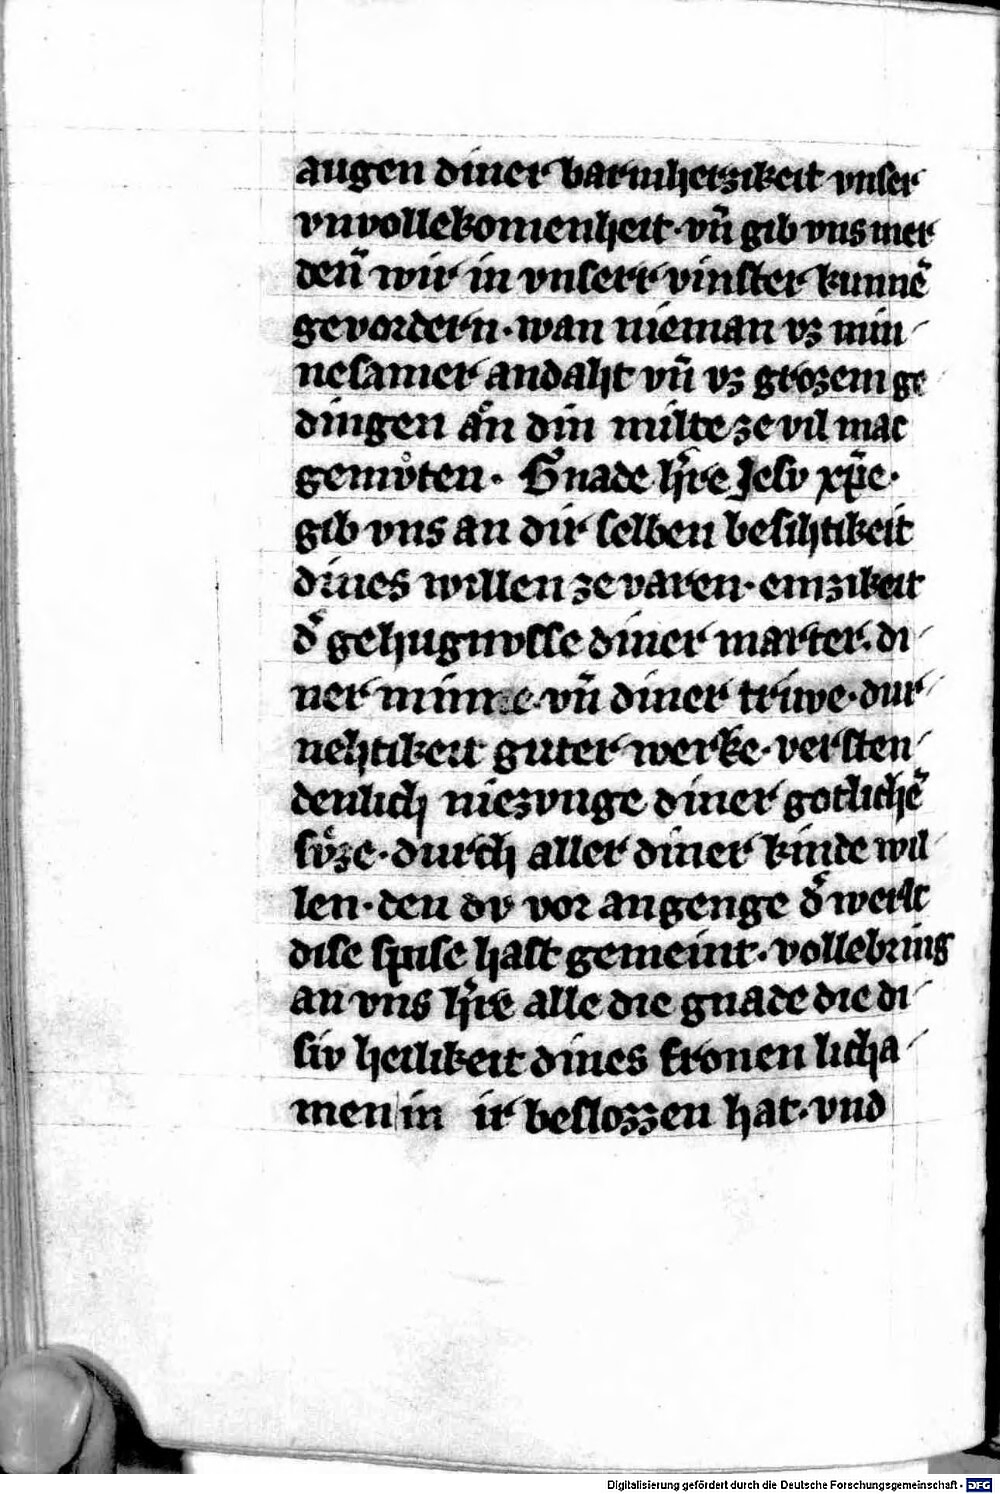 augen diner barmhertzikeit vnser
vnvollekomenheit · vn̄ gib vns mer
den̄ wir in vnserr vinster kunnē
gevordern · wan nieman vz min
nesamer andaht vn̄ vz grozem ge
dingen an̊ din milte ze vil mac
gemv̊ten · Gnade hr̄e Jesv xp̄e ·
gib vns an dir selben besihtikeit
dines willen ze varen · emzikeit
d̾ gehugnvsse diner marter · di
ner minne · vn̄ diner triwe · dur
nehtikeit guter werke · versten
denlich niezunge diner gotlichē
sv̊ze · durch aller diner kinde wil
len · den dv vor angenge d̾ werlt
dise spise hast gemeint · vollebring
an vns hr̄e alle die gnade die di
siv heilikeit dines fronen licha
men in ir beslozzen hat · vnd
Digitalisierung gefördert durch die Deutsche Forschungsgemeinschaft - DFG